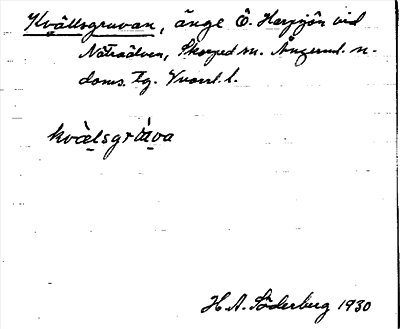 Kvällsgruvan, änge Ö. Herrsjön vid
Nätraälven, Skorped sn. Ångerml. n.
doms. tg. Yvonl. l.
kvälsgruava
H A. Söderberg 1930